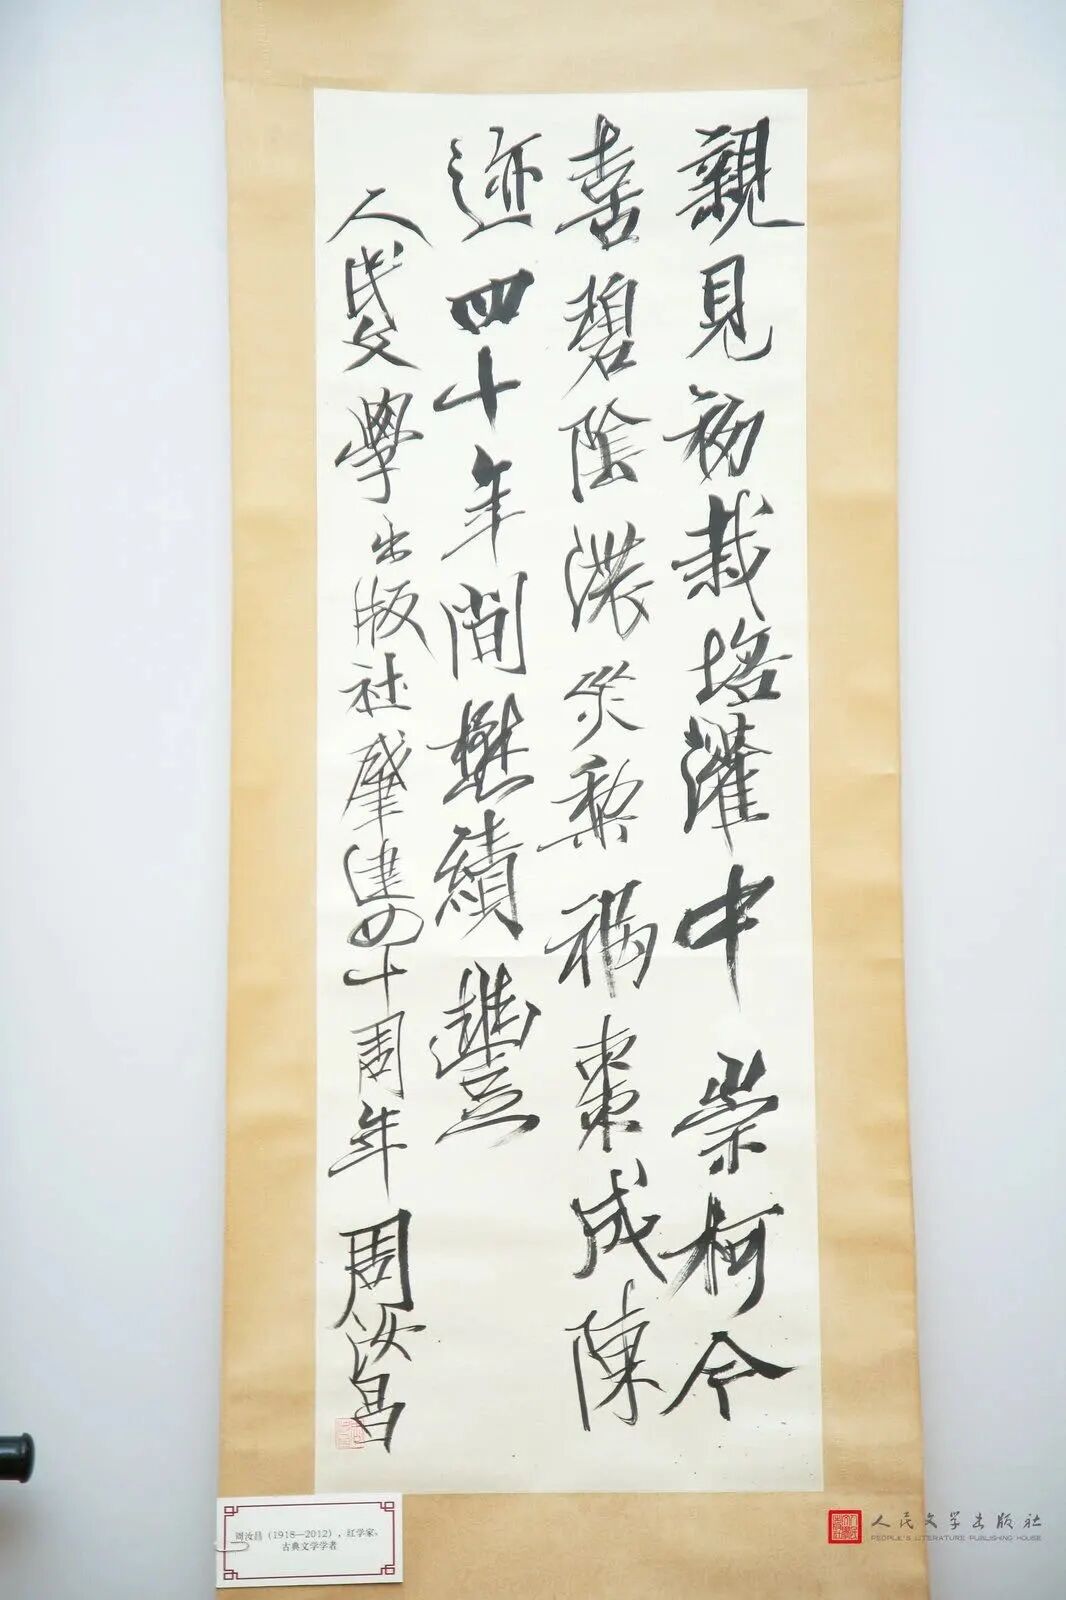 親見初栽培灌中崇柯今
喜碧陰濃災梨禍棗成陳
迹四十年間懋績豐
人民文學出版社肇建四十周年 周汝昌
周汝昌（1918—2012），红学家、
古典文学学者
人民文学出版社
PEOPLE'S LITERATURE PUBLISHING HOUSE